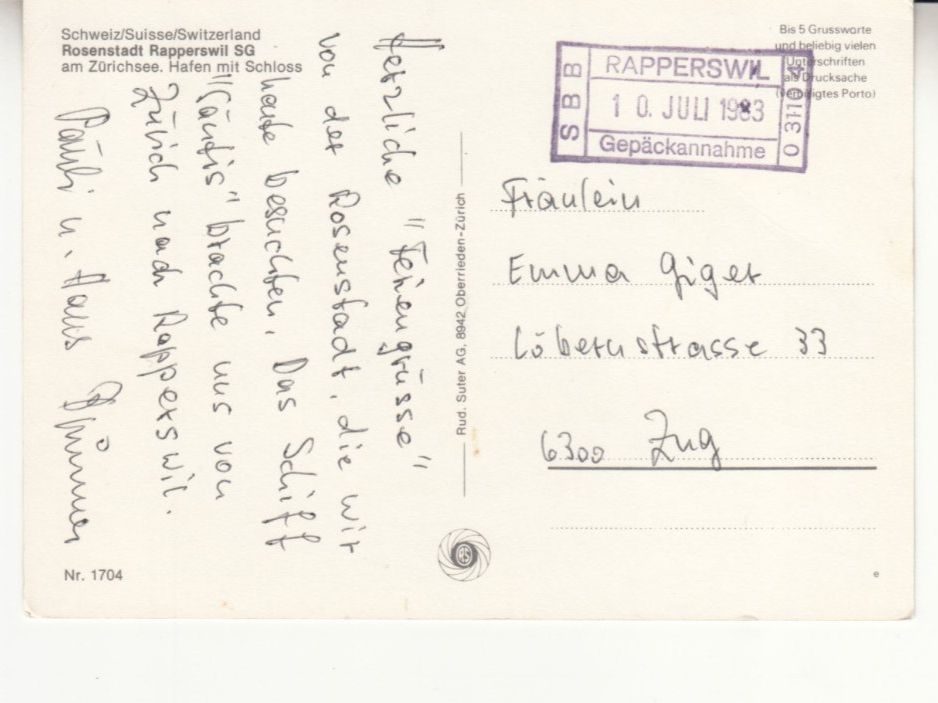 Schweiz/Suisse/Switzerland
Rosenstadt Rapperswil SG
am Zürichsee. Hafen mit Schloss
Herzliche "Feriengrüsse"
von der Rosenstadt, die wir
heute besuchten. Das Schiff
"Säntis" brachte uns von
Zürich nach Rapperswil.
u. Hans
Nr. 1704
Rud. Suter AG, 8942 Oberrieden-Zürich
Bis 5 Grussworte
und beliebig vielen
Unterschriften
als Drucksache
(verbilligtes Porto)
SBB
RAPPERSWIL
10. JULI 1983
Gepäckannahme
Fräulein
Emma Giger
Löbernstrasse 33
6300 Zug
RS
e